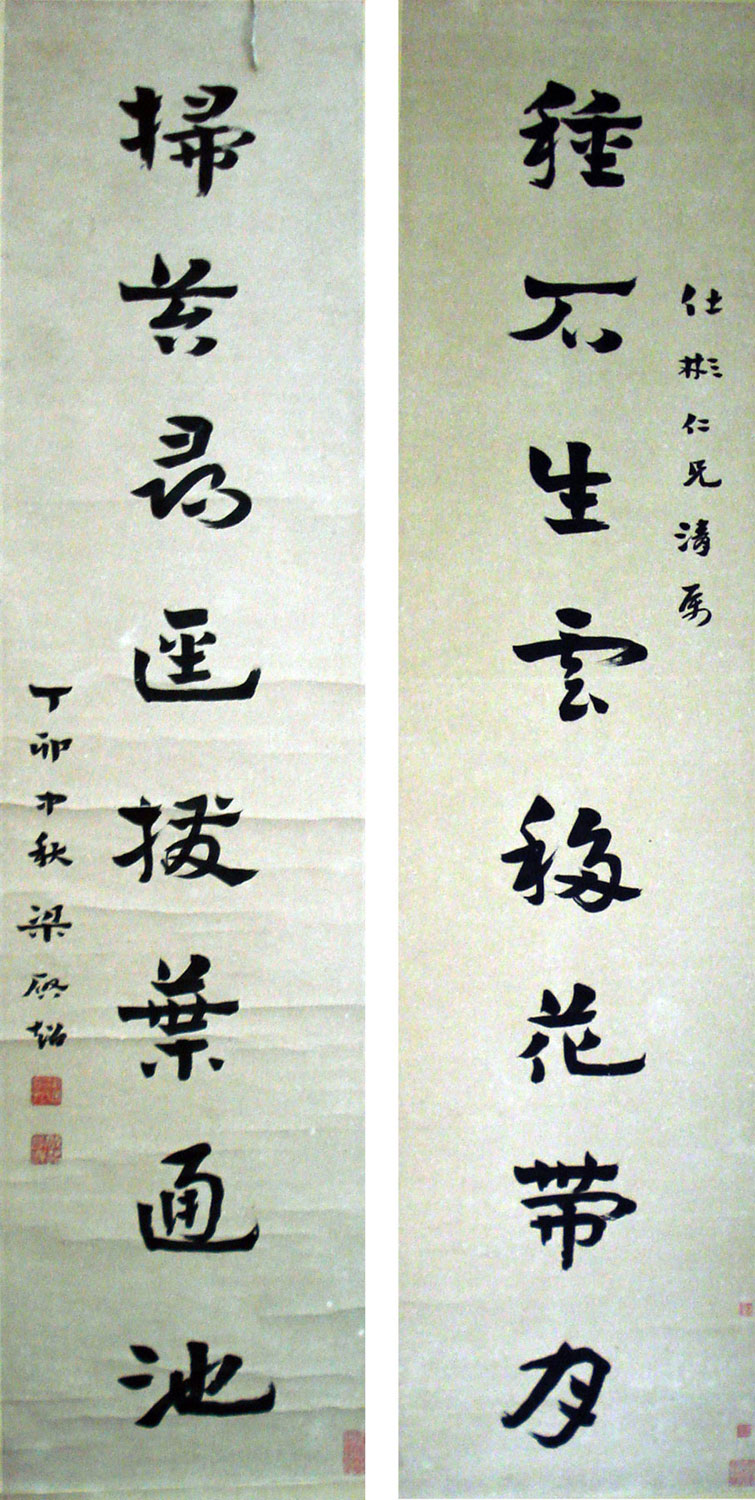 仕彬仁兄清属
種石生雲移花帶月
掃苔尋逕撥葉通池
丁卯中秋梁啟超